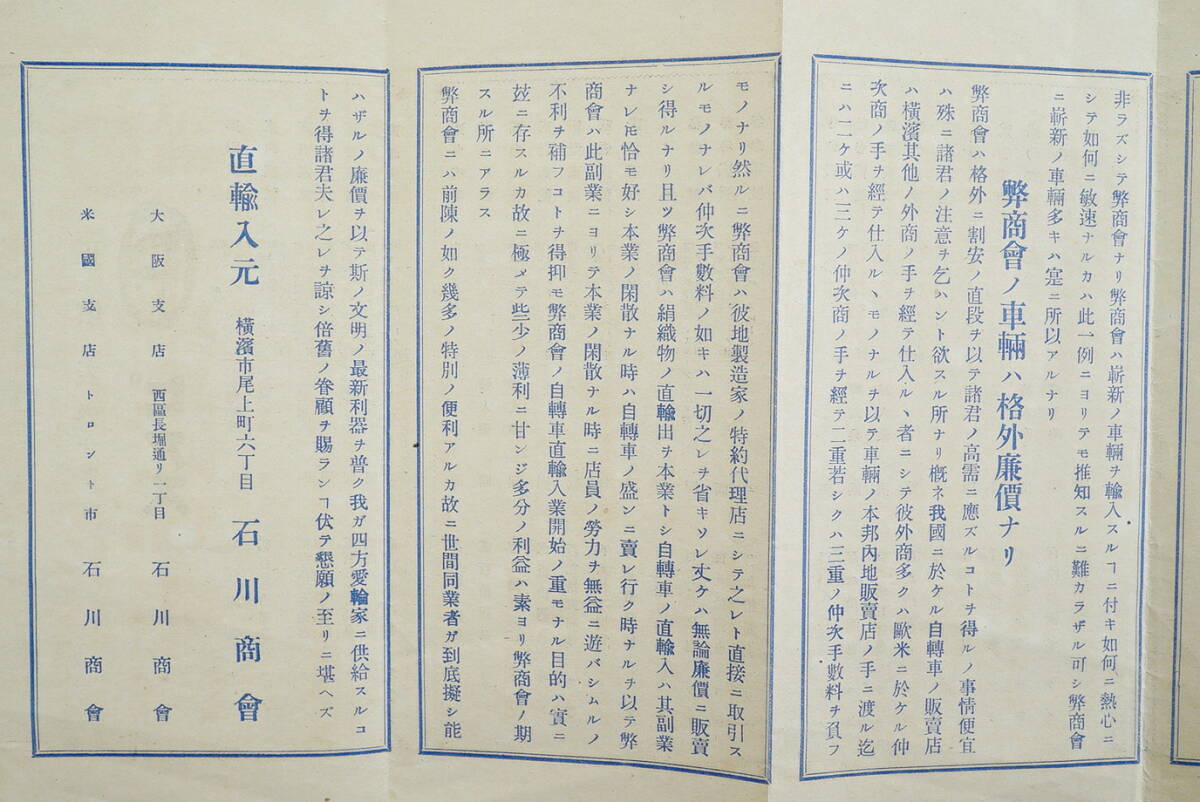 非ラズシテ弊商會ナリ弊商會ハ嶄新ノ車輛ヲ輸入スルヿニ付キ如何ニ熱心ニ
シテ如何ニ敏速ナルカハ此一例ニヨリテモ推知スルニ難カラザル可シ弊商會
ニ嶄新ノ車輛多キハ寔ニ所以アルナリ
弊商會ノ車輛ハ格外廉價ナリ
弊商會ハ格外ニ割安ノ直段ヲ以テ諸君ノ高需ニ應ズルコトヲ得ルノ事情便宜
ハ殊ニ諸君ノ注意ヲ乞ハント欲スル所ナリ槪ネ我國ニ於ケル自轉車ノ販賣店
ハ橫濱其他ノ外商ノ手ヲ經テ仕入ルヽ者ニシテ彼外商多クハ歐米ニ於ケル仲
次商ノ手ヲ經テ仕入ルヽモノナルヲ以テ車輛ノ本邦內地販賣店ノ手ニ渡ル迄
ニハ二ケ或ハ三ケノ仲次商ノ手ヲ經テ二重若シクハ三重ノ仲次手數料ヲ負フ
モノナリ然ルニ弊商會ハ彼地製造家ノ特約代理店ニシテ之レト直接ニ取引ス
ルモノナレバ仲次手數料ノ如キハ一切之レヲ省キソレ丈ケハ無論廉價ニ販賣
シ得ルナリ且ツ弊商會ハ絹織物ノ直輸出ヲ本業トシ自轉車ノ直輸入ハ其副業
ナレ𪜈恰モ好シ本業ノ閑散ナル時ハ自轉車ノ盛ンニ賣レ行ク時ナルヲ以テ弊
商會ハ此副業ニヨリテ本業ノ閑散ナル時ニ店員ノ勞力ヲ無益ニ遊バシムルノ
不利ヲ補フコトヲ得抑モ弊商會ノ自轉車直輸入業開始ノ重モナル目的ハ實ニ
玆ニ存スルカ故ニ極メテ些少ノ薄利ニ甘ンジ多分ノ利益ハ素ヨリ弊商會ノ期
スル所ニアラス
弊商會ニハ前陳ノ如ク幾多ノ特別ノ便利アルカ故ニ世間同業者ガ到底擬シ能
ハザルノ廉價ヲ以テ斯ノ文明ノ最新利器ヲ普ク我ガ四方愛輪家ニ供給スルコ
トヲ得諸君夫レ之レヲ諒シ倍舊ノ眷顧ヲ賜ランヿ伏テ懇願ノ至リニ堪ヘズ
直輸入元 橫濱市尾上町六丁目 石川商會
大阪支店 西區長堀通リ一丁目 石川商會
米國支店 トロント市 石川商會